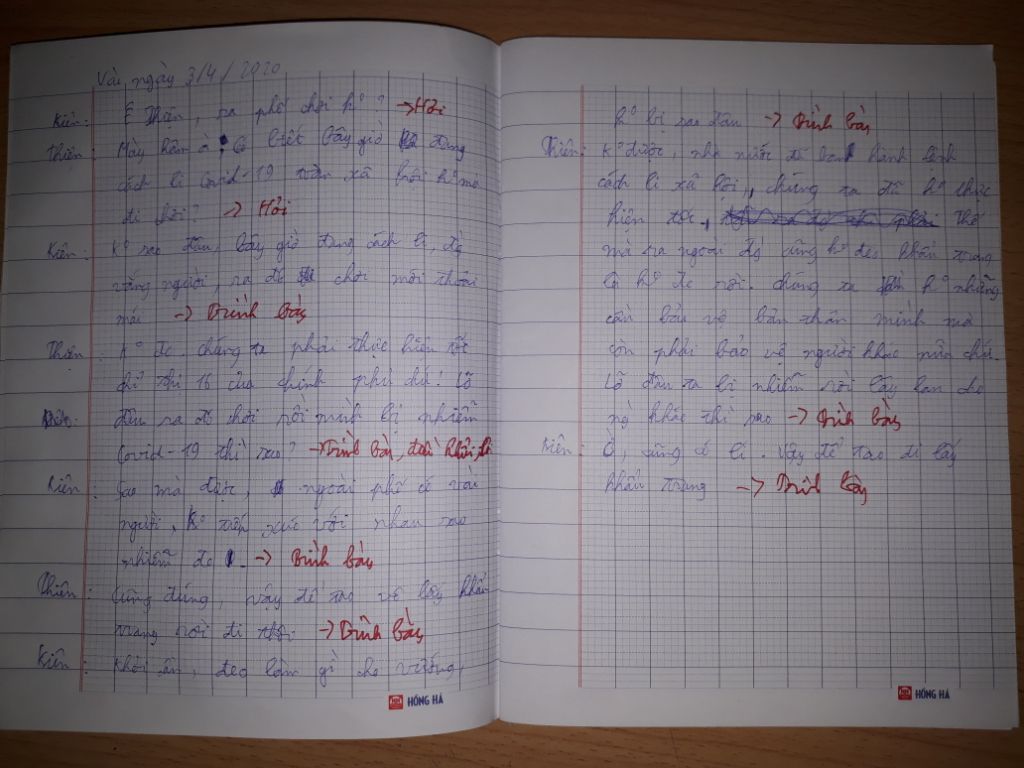 Vài, ngày 3/4/2020
Kiên: Ê Thiện, ra phố chơi kº? -> Hỏi
Thiện: Mày hâm à, có biết bây giờ đang
cách li Covid-19 toàn xã hội kº mà
đi chơi? -> Hỏi
Kiên: Kº sao đâu, bây giờ đang cách li, đg
vắng người, ra đó chơi mới thoải
mái -> Trình bày
Thiện: Kº đc. chúng ta phải thực hiện tốt
chỉ thị 16 của chính phủ chứ! Lỡ
đâu ra đó chơi rồi mình bị nhiễm
Covid-19 thì sao? -> Trình bày,
Kiên: Sao mà được, ngoài phố có vài
người, kº tiếp xúc với nhau sao
nhiễm đc. -> Trình bày
Thiện: Cũng đúng, vậy để tao về lấy khẩu
trang rồi đi -> Trình bày
Kiên: Khỏi cần, đeo làm gì cho vướng,
kº bị sao đâu -> Trình bày
Thiện: Kº được, nhà nước đã ban hành lệnh
cách li xã hội, chúng ta đã kº thực
hiện tốt, Thế
mà ra ngoài đg cũng kº đeo khẩu trang
là kº đc rồi. chúng ta kº những
cần bảo vệ bản thân mình mà
còn phải bảo vệ người khác nữa chứ.
Lỡ đâu ta bị nhiễm rồi lây lan cho
ng khác thì sao -> Trình bày
Kiên: Ờ, cũng có lí. Vậy để tao đi lấy
khẩu trang -> Trình bày
HỒNG HÀ
HỒNG HÀ